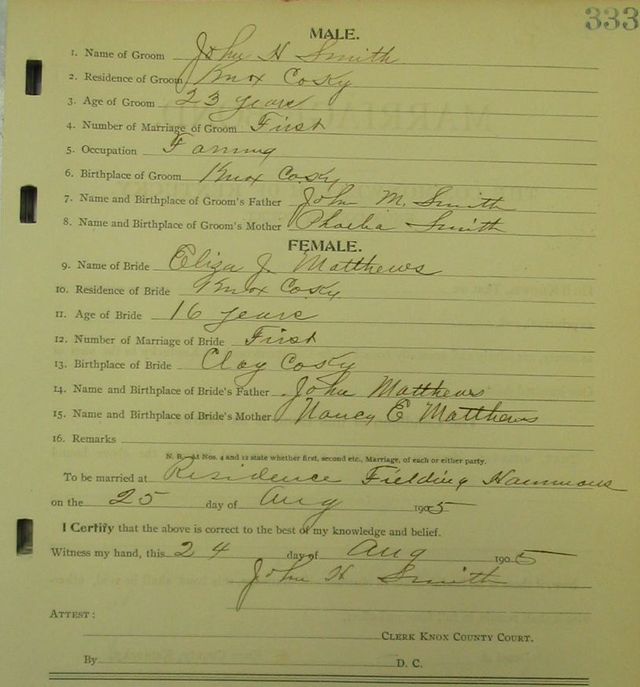 333
MALE.
1. Name of Groom John H Smith
2. Residence of Groom Knox Co Ky
3. Age of Groom 23 years
4. Number of Marriage of Groom First
5. Occupation Farming
6. Birthplace of Groom Knox Co Ky
7. Name and Birthplace of Groom's Father John M. Smith
8. Name and Birthplace of Groom's Mother Phoebia Smith
FEMALE.
9. Name of Bride Eliza J. Matthews
10. Residence of Bride Knox Co Ky
11. Age of Bride 16 years
12. Number of Marriage of Bride First
13. Birthplace of Bride Clay Co Ky
14. Name and Birthplace of Bride's Father John Matthews
15. Name and Birthplace of Bride's Mother Nancy E Matthews
16. Remarks
N. B.—At Nos. 4 and 12 state whether first, second etc., Marriage, of each or either party.
To be married at Residence Fielding Hammons
on the 25 day of Aug 1905
I Certify that the above is correct to the best of my knowledge and belief.
Witness my hand, this 24 day of Aug 1905
John H Smith
ATTEST:
CLERK KNOX COUNTY COURT.
By D. C.